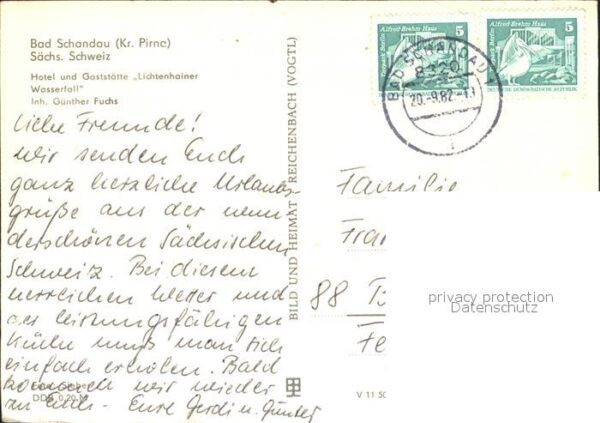 Bad Schandau (Kr. Pirna)
Sächs. Schweiz
Hotel und Gaststätte „Lichtenhainer
Wasserfall"
Inh. Günther Fuchs
Liebe Freunde!
Wir senden Euch
ganz herzliche Urlaubs-
grüße aus der wun
derschönen Sächsischen
Schweiz. Bei diesem
herrlichen Wetter und
der leistungsfähigen
Küche muß man sich
einfach erholen. Bald
kommen wir wieder
zu Euch - Eure Gerdi u. Günter
DDR 0,20 M
BILD UND HEIMAT REICHENBACH (VOGTL)
V 11 50
Alfred-Brehm-Haus
5
Tierpark Berlin
Alfred-Brehm-Haus
5
Tierpark Berlin
DEUTSCHE DEMOKRATISCHE REPUBLIK
BAD SCHANDAU 1
8320
20.-9.82.-
Familie
Fran
88
privacy protection
Datenschutz